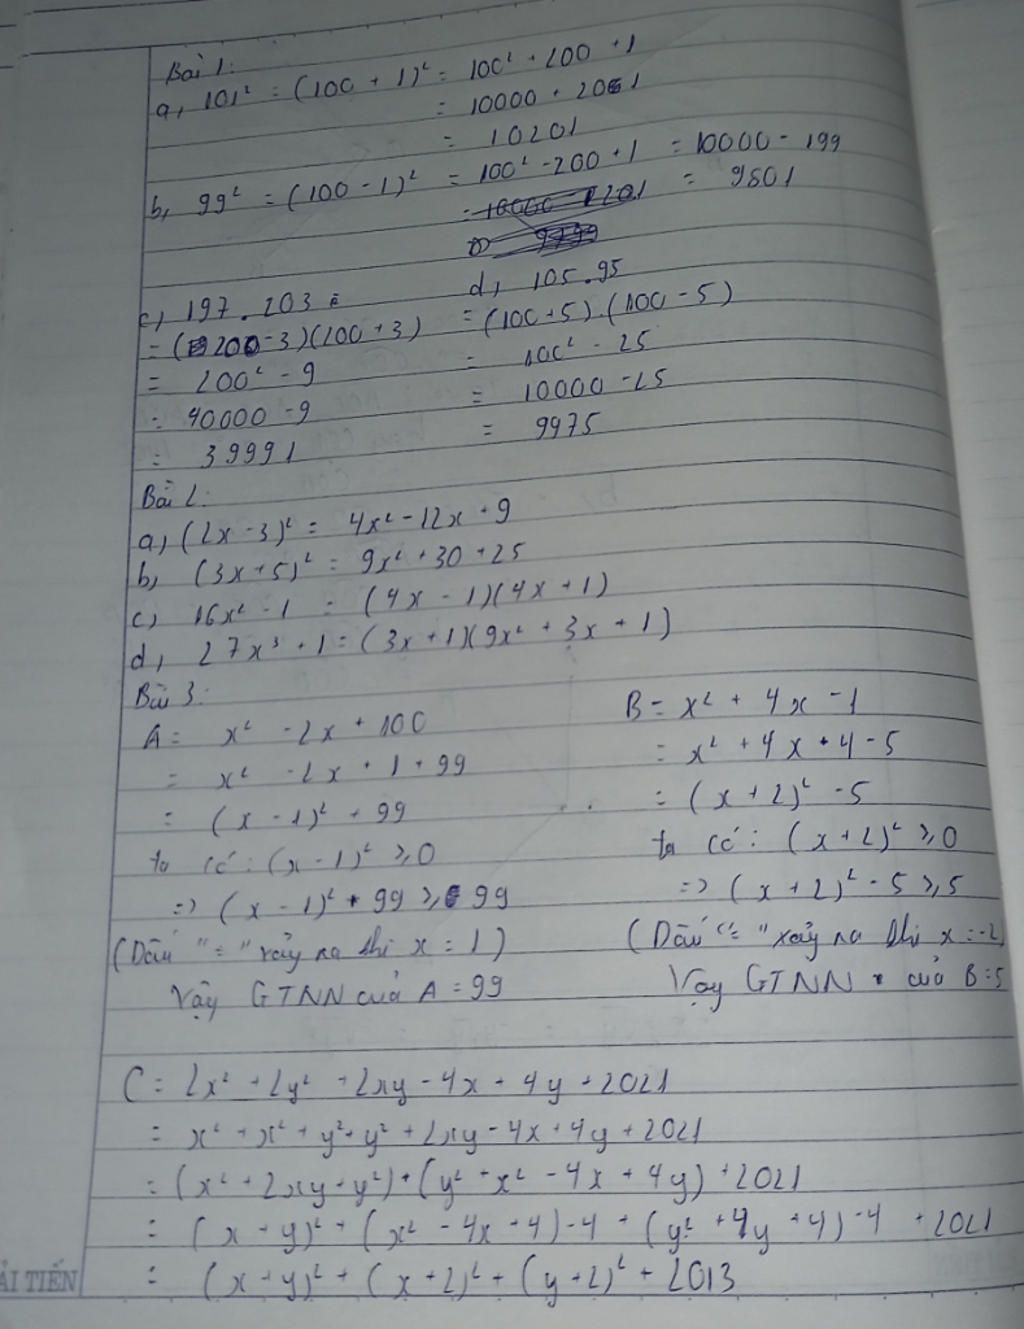 Bài 1:
a, 101² = (100 + 1)² = 100² + 200 + 1
= 10000 + 201
= 10201
b, 99² = (100 - 1)² = 100² - 200 + 1 = 10000 - 199
= 9801
c, 197 . 203 = d, 105 . 95
= (200 - 3)(200 + 3) = (100 + 5) . (100 - 5)
= 200² - 9 = 100² - 25
= 40000 - 9 = 10000 - 25
= 39991 = 9975
Bài 2:
a, (2x - 3)² = 4x² - 12x + 9
b, (3x + 5)² = 9x² + 30 + 25
c, 16x² - 1 = (4x - 1)(4x + 1)
d, 27x³ + 1 = (3x + 1)(9x² + 3x + 1)
Bài 3:
A = x² - 2x + 100
= x² - 2x + 1 + 99
= (x - 1)² + 99
ta có : (x - 1)² ≥ 0
=> (x - 1)² + 99 ≥ 99
(Dấu "=" xảy ra khi x = 1)
Vậy GTNN của A = 99
B = x² + 4x - 1
= x² + 4x + 4 - 5
= (x + 2)² - 5
ta có : (x + 2)² ≥ 0
=> (x + 2)² - 5 ≥ 5
(Dấu "=" xảy ra khi x = -2)
Vậy GTNN của B = 5
C = 2x² + 2y² + 2xy - 4x + 4y + 2021
= x² + x² + y² + y² + 2xy - 4x + 4y + 2021
= (x² + 2xy + y²) + (y² + x² - 4x + 4y) + 2021
= (x + y)² + (x² - 4x + 4) - 4 + (y² + 4y + 4) - 4 + 2021
= (x + y)² + (x + 2)² + (y + 2)² + 2013
ẢI TIẾN